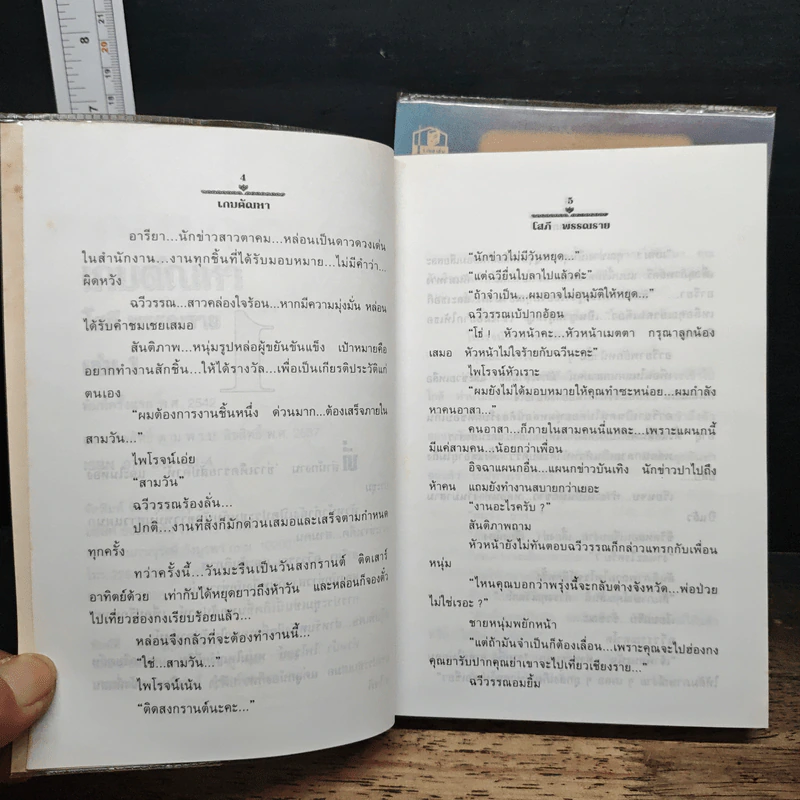 8
20
7
18
4
เกมตัณหา
อารียา...นักข่าวสาวตาคม...หล่อนเป็นดาวดวงเด่น
ในสำนักงาน...งานทุกชิ้นที่ได้รับมอบหมาย...ไม่มีคำว่า...
ผิดหวัง
ฉวีวรรณ...สาวคล่องใจร้อน...หากมีความมุ่งมั่น หล่อน
ได้รับคำชมเชยเสมอ
สันติภาพ...หนุ่มรูปหล่อผู้ขยันขันแข็ง เป้าหมายคือ
อยากทำงานสักชิ้น...ให้ได้รางวัล...เพื่อเป็นเกียรติประวัติแก่
ตนเอง
“ผมต้องการงานชิ้นหนึ่ง ด่วนมาก...ต้องเสร็จภายใน
สามวัน...”
ไพโรจน์เอ่ย
“สามวัน”
ฉวีวรรณร้องลั่น...
ปกติ...งานที่สั่งก็มักด่วนเสมอและเสร็จตามกำหนด
ทุกครั้ง
ทว่าครั้งนี้...วันมะรืนเป็นวันสงกรานต์ ติดเสาร์
อาทิตย์ด้วย เท่ากับได้หยุดยาวถึงห้าวัน และหล่อนก็จองตั๋ว
ไปเที่ยวฮ่องกงเรียบร้อยแล้ว...
หล่อนจึงกลัวที่จะต้องทำงานนี้...
“ใช่...สามวัน...”
ไพโรจน์เน้น
“ติดสงกรานต์นะคะ...”
5
โสภี พรรณราย
“นักข่าวไม่มีวันหยุด...”
“แต่ฉวียื่นใบลาไปแล้วค่ะ”
“ถ้าจำเป็น...ผมอาจไม่อนุมัติให้หยุด...”
ฉวีวรรณเบ้ปากอ้อน
“โธ่ ! หัวหน้าคะ...หัวหน้าเมตตา กรุณาลูกน้อง
เสมอ หัวหน้าไม่ใจร้ายกับฉวีนะคะ”
ไพโรจน์หัวเราะ
“ผมยังไม่ได้มอบหมายให้คุณทำซะหน่อย...ผมกำลัง
หาคนอาสา...”
คนอาสา...ก็ภายในสามคนนี่แหละ...เพราะแผนกนี้
มีแค่สามคน...น้อยกว่าเพื่อน
อิจฉาแผนกอื่น...แผนกข่าวบันเทิง นักข่าวปาไปถึง
ห้าคน แถมยังทำงานสบายกว่าเยอะ
“งานอะไรครับ ?”
สันติภาพถาม
หัวหน้ายังไม่ทันตอบฉวีวรรณก็กล่าวแทรกกับเพื่อน
หนุ่ม
“ไหนคุณบอกว่าพรุ่งนี้จะกลับต่างจังหวัด...พ่อป่วย
ไม่ใช่เรอะ ?”
ชายหนุ่มพยักหน้า
“แต่ถ้ามันจำเป็นก็ต้องเลื่อน...เพราะคุณจะไปฮ่องกง
คุณยารับปากคุณย่าเขาจะไปเที่ยวเชียงราย...”
ฉวีวรรณอมยิ้ม